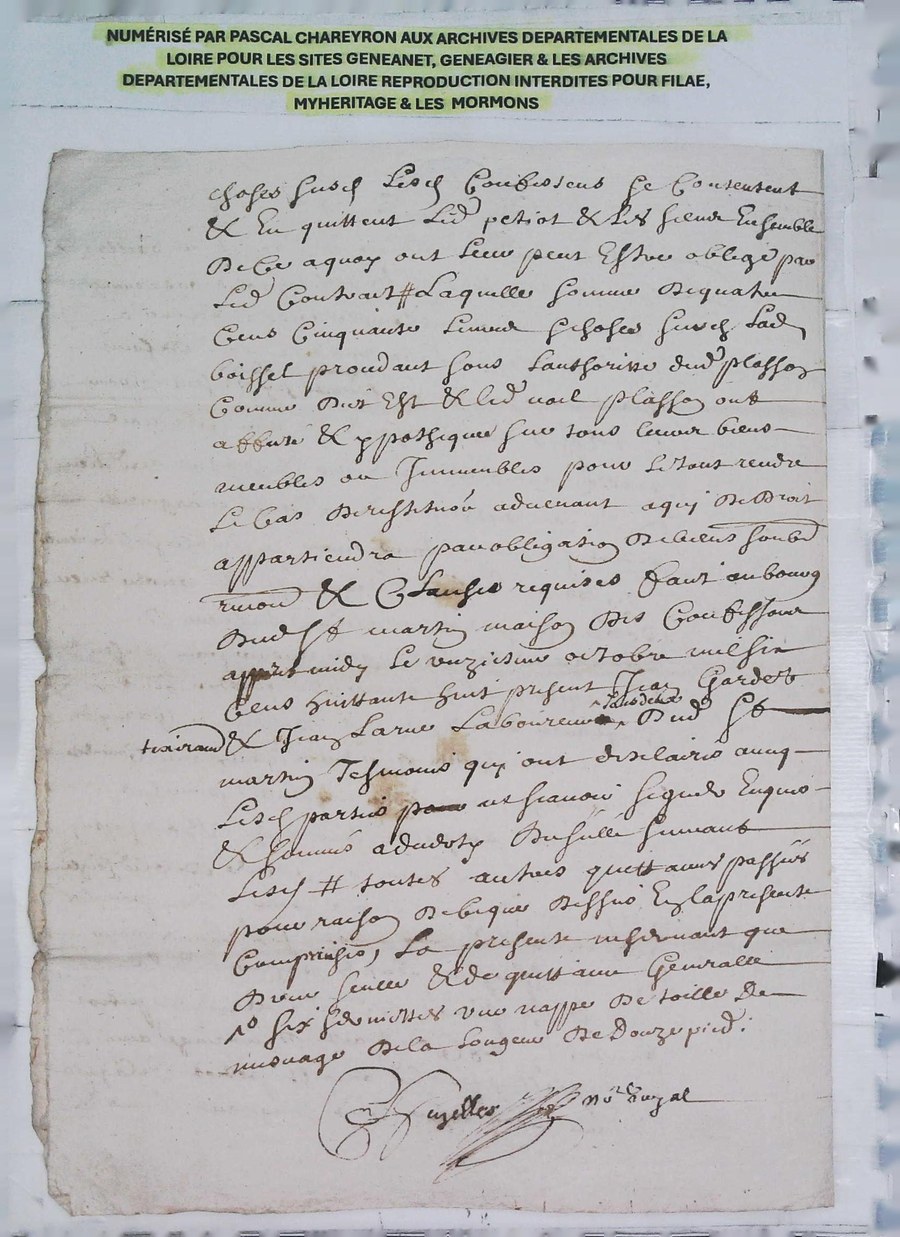 NUMÉRISÉ PAR PASCAL CHAREYRON AUX ARCHIVES DEPARTEMENTALES DE LA
LOIRE POUR LES SITES GENEANET, GENEAGIER & LES ARCHIVES
DEPARTEMENTALES DE LA LOIRE REPRODUCTION INTERDITES POUR FILAE,
MYHERITAGE & LES MORMONS
choses susd Lesd Confessens se Contentent
& En quittent Led petiot & Les sieurs Ensemble
De Ce aquoy ont Leur peut Estre obligé par
Led Contrait # Laquelle somme De quatre
Cens Cinquante Livres & choses susd Lad
boissel proudant sous Lauthoritte dud plasson
Comme Dict Est & led noel plasson ont
& yppothique sur tous Leurs biens
meubles ou Immeubles pour Le tout rendre
Le Cas De restituôn advenant a quy De Droit
appartiendra par obligation De biens soubd
& Clauses requises faict au bourg
Dud St martin maison Des Confessans
appres midy Le unziesme octobre mil six
Cens huittante huit present Jean Gardet
tixirand & Jean Larue Laboureur tous deux Dud St
martin Tesmoins quy ont desclaire avecq
Lesd parties ne scavoir signer Enquis
& sommés suivant
Lesd # toutes autres quittances passées
pour raison De ce que Dessus En la presente
Comprises, La presente ne servant que
Dune seulle & de quittance Generalle
six serviettes une nappe De toille De
mesnage De la Longeur De Douze pied.
no.re Royal